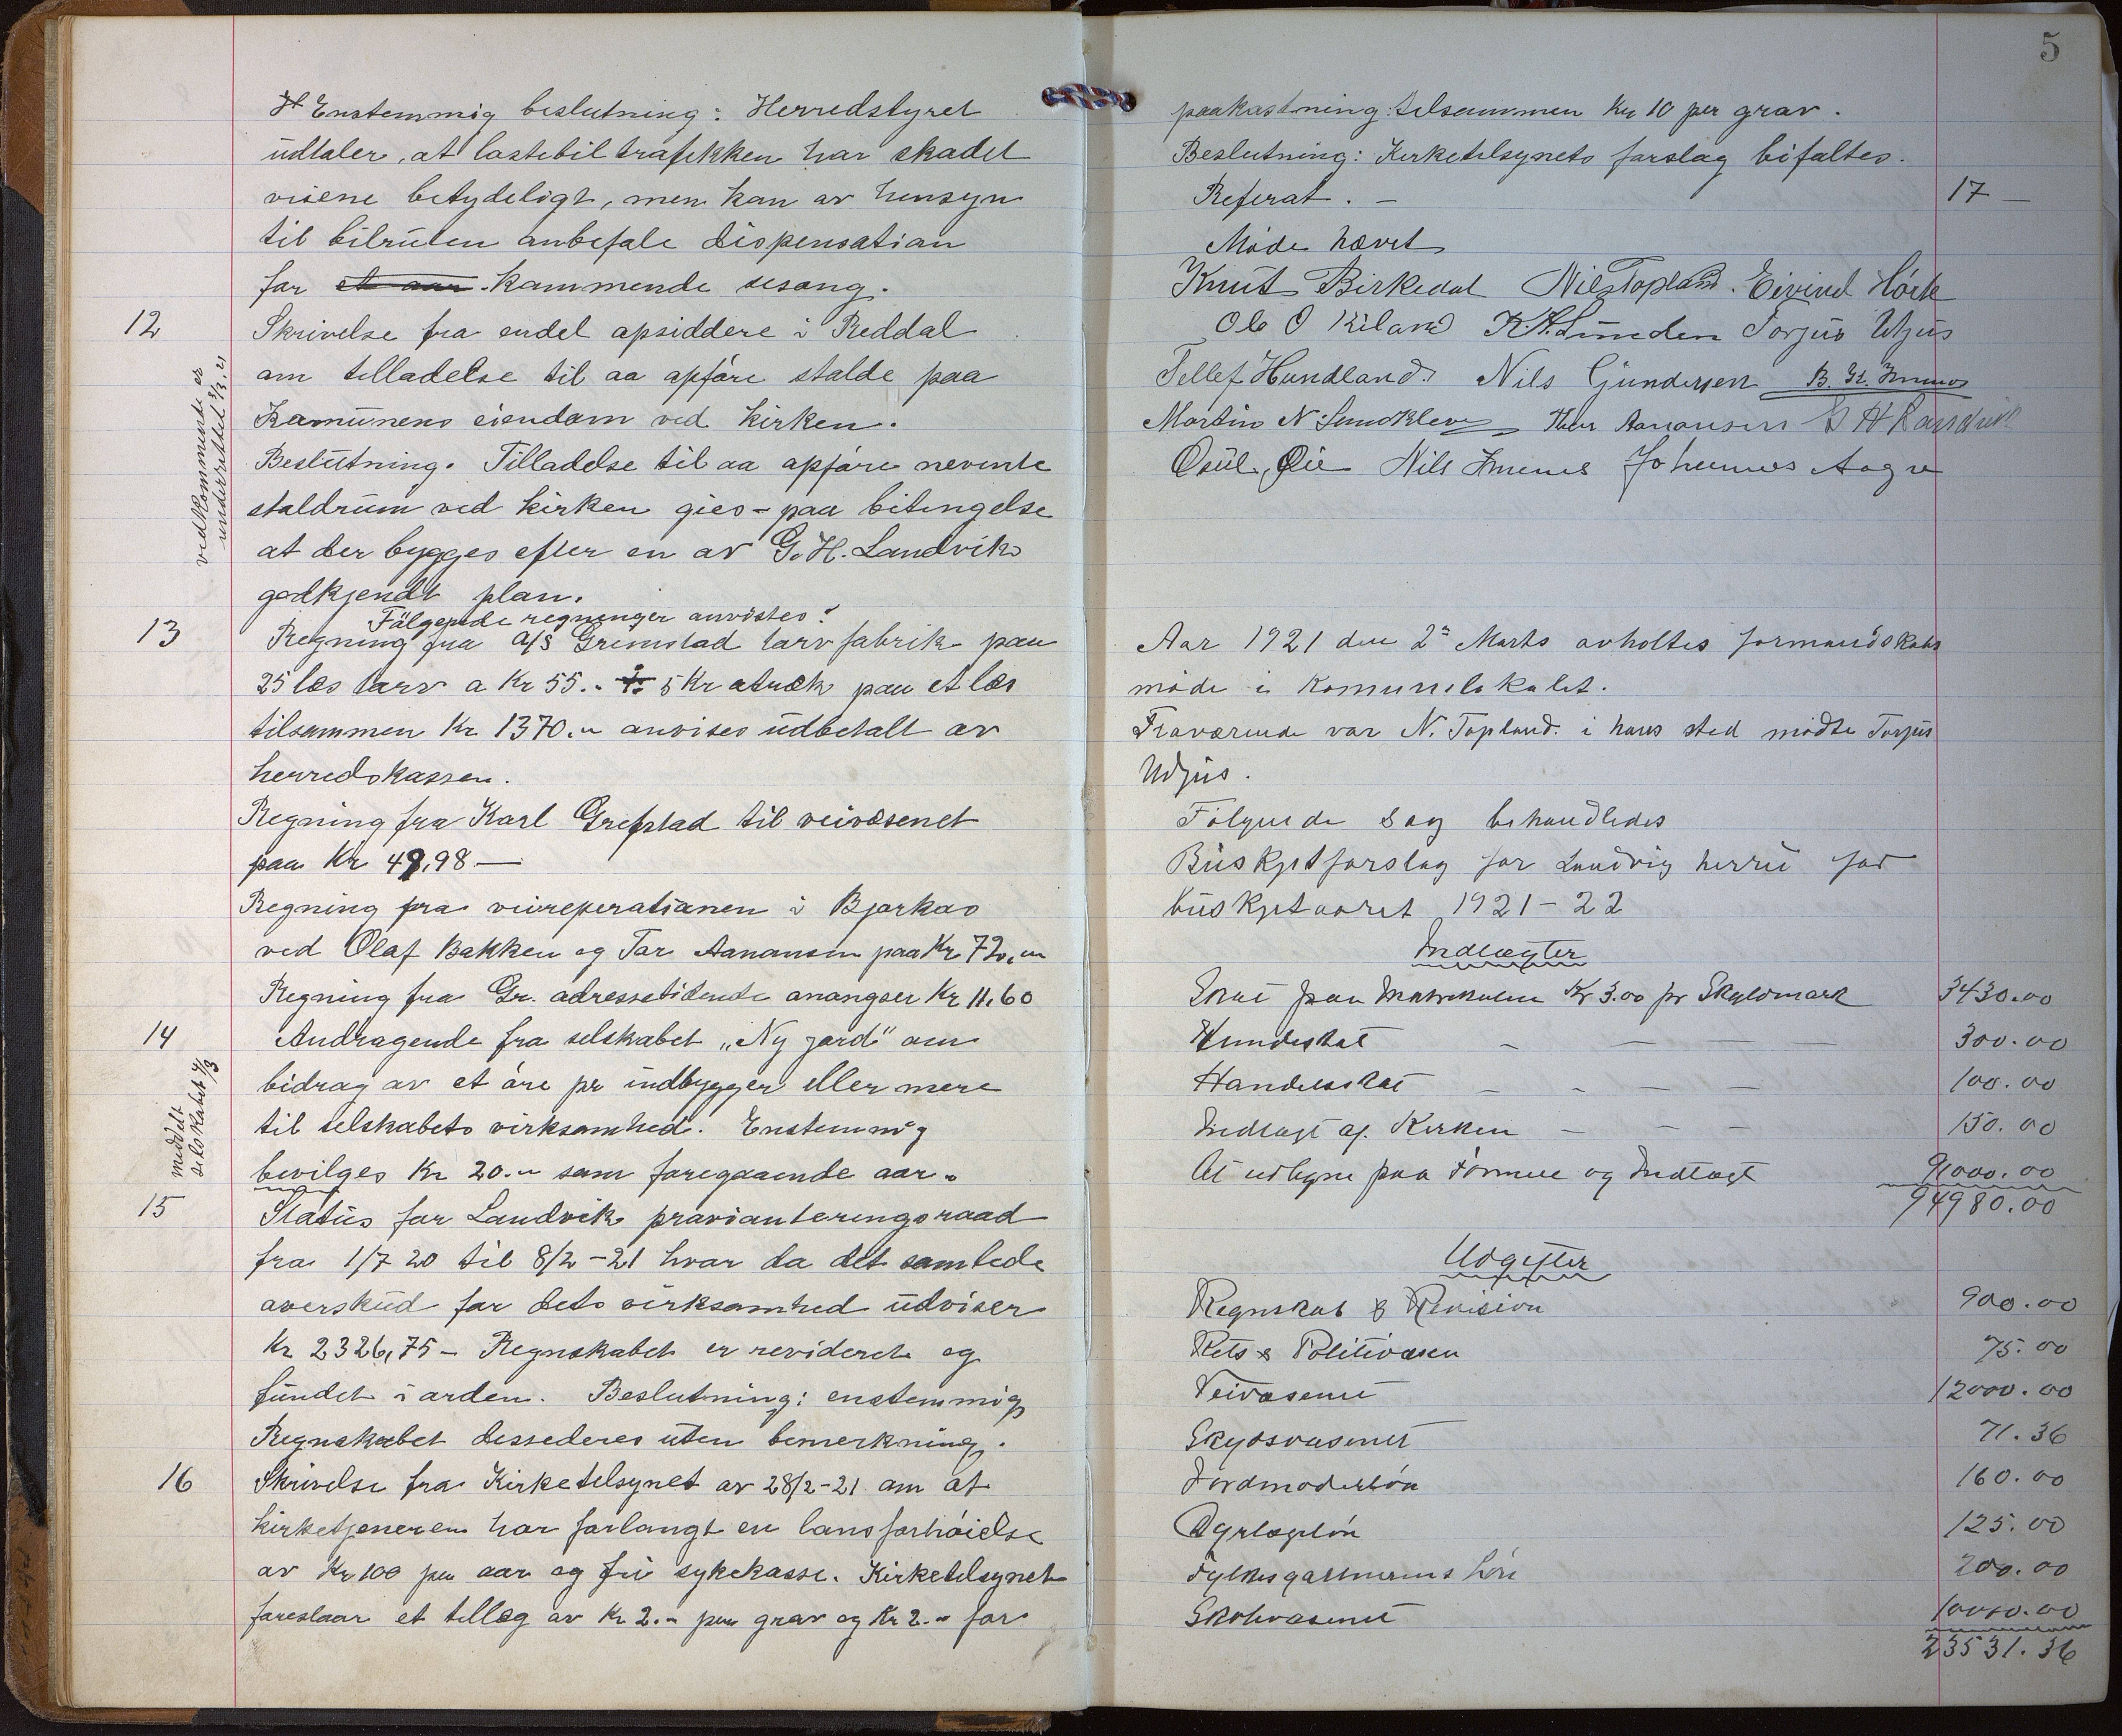 Enstemmig beslutning: Herredstyret
udtaler, at lastebiltrafikken har skadet
veiene betydeligt, men kan av hensyn
til bilruten anbefale dispensation
for et aar kommende sesong.
12
Skrivelse fra endel opsiddere i Reddal
om telladelse til aa opføre stalde paa
Komunens eiendom ved kirken.
Beslutning. Tilladelse til aa opføre nevente
staldrum ved kirken gies - paa betingelse
at der bygges efter en av G. H. Landvik
godkjendt plan.
vedkommende er
underrettet 3/3.21
13
Følgende regninger anvistes:
Regning fra A/S Grimstad tarvfabrik paa
25 læs tarv a Kr 55.- 5 Kr atræk paa et læs
tilsammen Kr 1370.- anvises udbetalt av
herredskassen.
Regning fra Karl Grefstad til veivæsenet
paa Kr 49,98 —
Regning fra veireperationen i Bjorkas
ved Olaf Bakken og Tor Aanonsen paa Kr 720,-
Regning fra Gr. adressetidende anongser Kr 11,60
14
Andragende fra selskabet „Ny jord" om
bidrag av et øre pr indbygger eller mere
til selskabets virksomhed. Enstemmig
bevilges Kr 20.- som foregaaende aar.
meddelt
selskabet 4/3
15
Status for Landvik provianteringsraad
fra 1/7 20 til 8/2-21 hvor da det samlede
overskud for dets virksomhed udviser
Kr 2326,75 - Regnskabet er revideret og
fundet i orden. Beslutning: enstemmig
Regnskabet dessederes uten bemerkning.
16
Skrivelse fra Kirketelsynet av 28/2-21 om at
kirketjeneren har forlangt en lønsforhøielse
av Kr 100 per aar og fri sykekasse. Kirketelsynet
foreslaar et tellæg av Kr 2.- per grav og Kr 2.- for
5
paakastning telsammen Kr 10 per grav.
Beslutning: Kirketelsynets forslag bifaltes.
Referat. —
17 —
Møde hævet
Knut Birkedal Nils Topland. Eivind Hørte
Ole O Kiland K. A. Lunden Torjus Utjus
Tellef Hundland. Nils Gundersen B. G. Imenes
Martin N. Lundkleven Thor Aanonsen G H Landvik
Osul Øie Nils Imenes Johannes Aagre
Aar 1921 den 2n Marts avholtes formandskabs
møde i Komunelokalet.
Fraværende var N. Topland. i hans sted mødte Torjus
Udjus.
Følgende Sag behandledes
Buskjetforslag for Landvig herred for
buskjetaaret 1921-22
Indtægter
Skat paa Matrikulen Kr 3.00 pr Skyldmark 3430.00
Hundeskat — — — — 300.00
Handelsskat — — — — 100.00
Indtægt af Kirken — — — 150.00
At udligne paa Formue og Indtægt 91000.00
94980.00
Udgifter
Regnskab & Revision 900.00
Rets & Politivæsen 75.00
Veivæsenet 12000.00
Skydsvæsenet 71.36
Jordmoderløn 160.00
Dyrlægeløn 125.00
Fylkesgartnerens Løn 200.00
Skolevæsenet 10000.00
23531.36